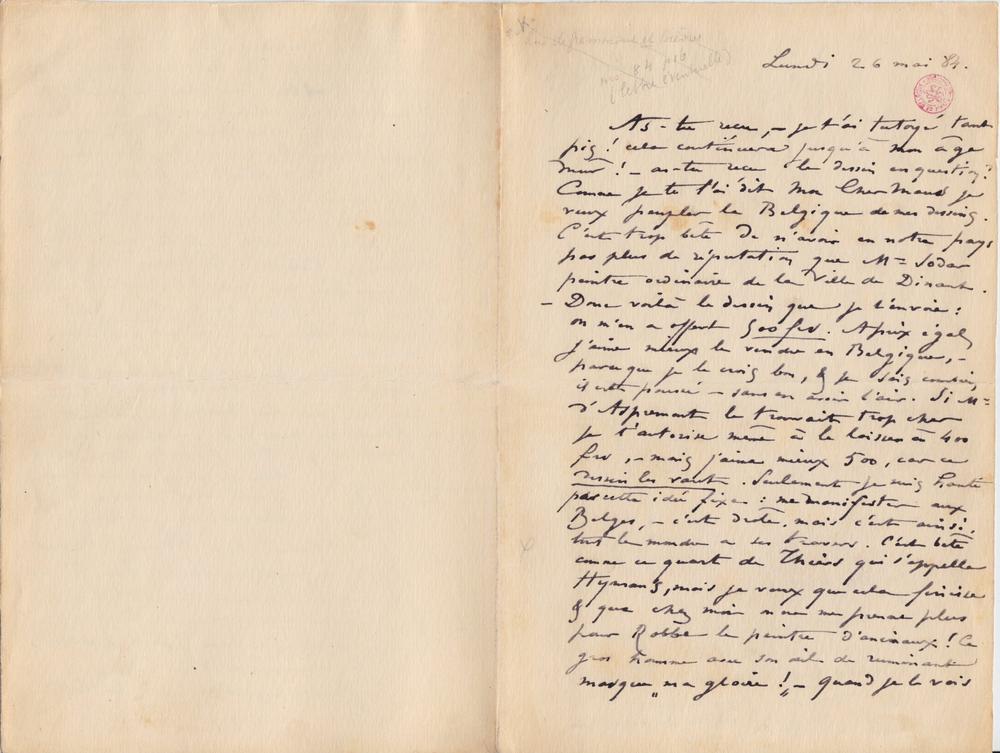 Lundi 26 mai 84.
As-tu recu, – je t'ai tutoyé tant
pis! cela continuera jusqu'à mon âge
mûr! – as-tu recu le dessin en question?
Comme je te l'ai dit Mon Cher Maus je
veux peupler la Belgique de mes dessins.
C'est trop bête de n'avoir en notre pays
pas plus de réputation que Mr Sodar
peintre ordinaire de la Ville de Dinant.
– Donc voilà le dessin que je t'envoie:
on m'en a offert 500 frs. A prix égal
j'aime mieux le vendre en Belgique, –
parceque je le crois bon, & je sais combien
il est poussé – sans en avoir l'air. Si Mr
d'Aspremont le trouvait trop cher
je t'autorise même à le laisser à 400
frs, – mais j'aime mieux 500, car ce
dessin les vaut. Seulement je suis hanté
par cette idée fixe: me manifester aux
Belges, – c'est bête, mais c'est ainsi,
tout le monde a ses travers. C'est bête
comme ce quart de Thiers qui s'appelle
Hymans, mais je veux que cela finisse
& que chez moi on ne me prenne plus
pour Robbe le peintre d'animaux! Ce
gros homme avec son œil de ruminant
masque "ma gloire!" – quand je le vois